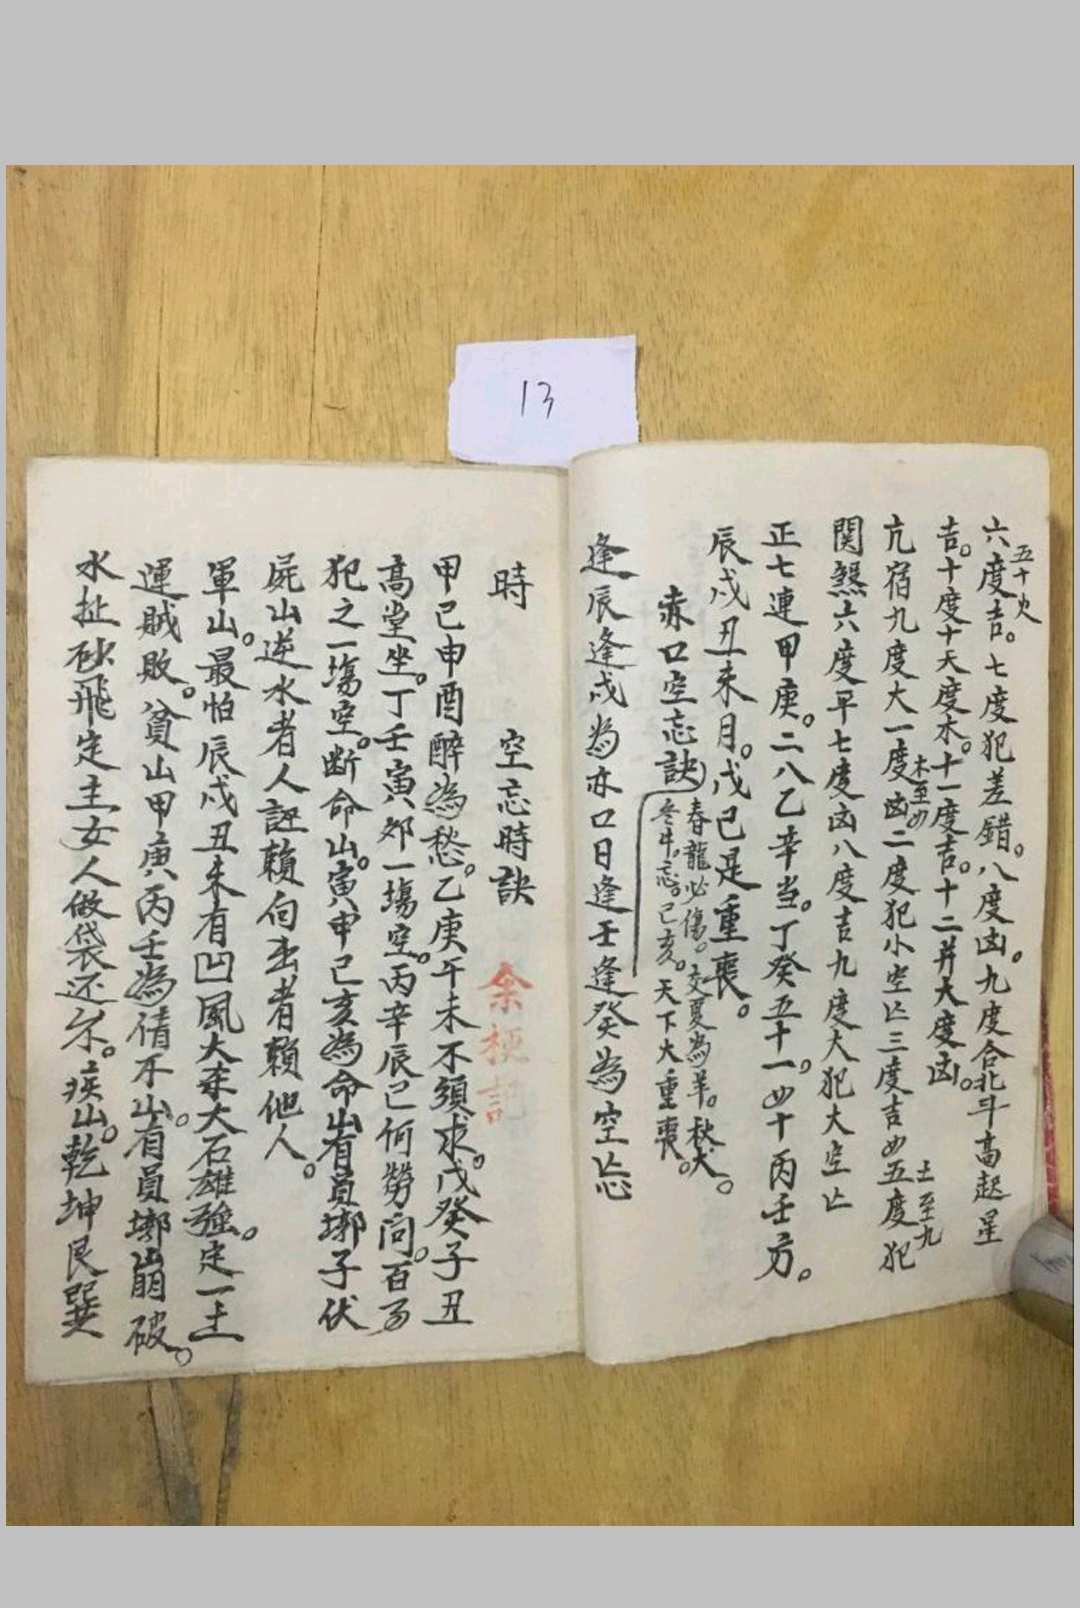 13
五十火
六度吉。七度犯差錯。八度凶。九度合北斗高起星
吉。十度十天度木。十一度吉。十二并大度凶。
木至四
土至九
亢宿九度大一度凶二度犯小空亡三度吉四五度犯
関煞六度早七度凶八度吉九度大犯大空亡
正七連甲庚。二八乙辛当。丁癸五十一。四十丙壬方。
辰戌丑未月。戊己是重喪。
赤口空忘訣
春龍必傷。交夏為羊。秋犬。
冬牛。忘。己亥。天下大重喪。
逢辰逢戌為亦口日逢壬逢癸為空亡忘
時 空忘時訣
余梗記
甲己申酉醉為愁。乙庚午未不須求。戊癸子丑
高堂坐。丁壬寅卯一塲空。丙辛辰巳何勞問。百事
犯之一塲空。断命山。寅申己亥為命山有員墎子伏
屍山逆水者人誣賴向去者賴他人。
軍山。最怕辰戌丑未有凹風大來大石雄強。定一主
運賊敗。貧山甲庚丙壬為倩不山。有員墎崩破。
水扯砂飛定主女人做袋还尔。疾山。乾坤艮巽